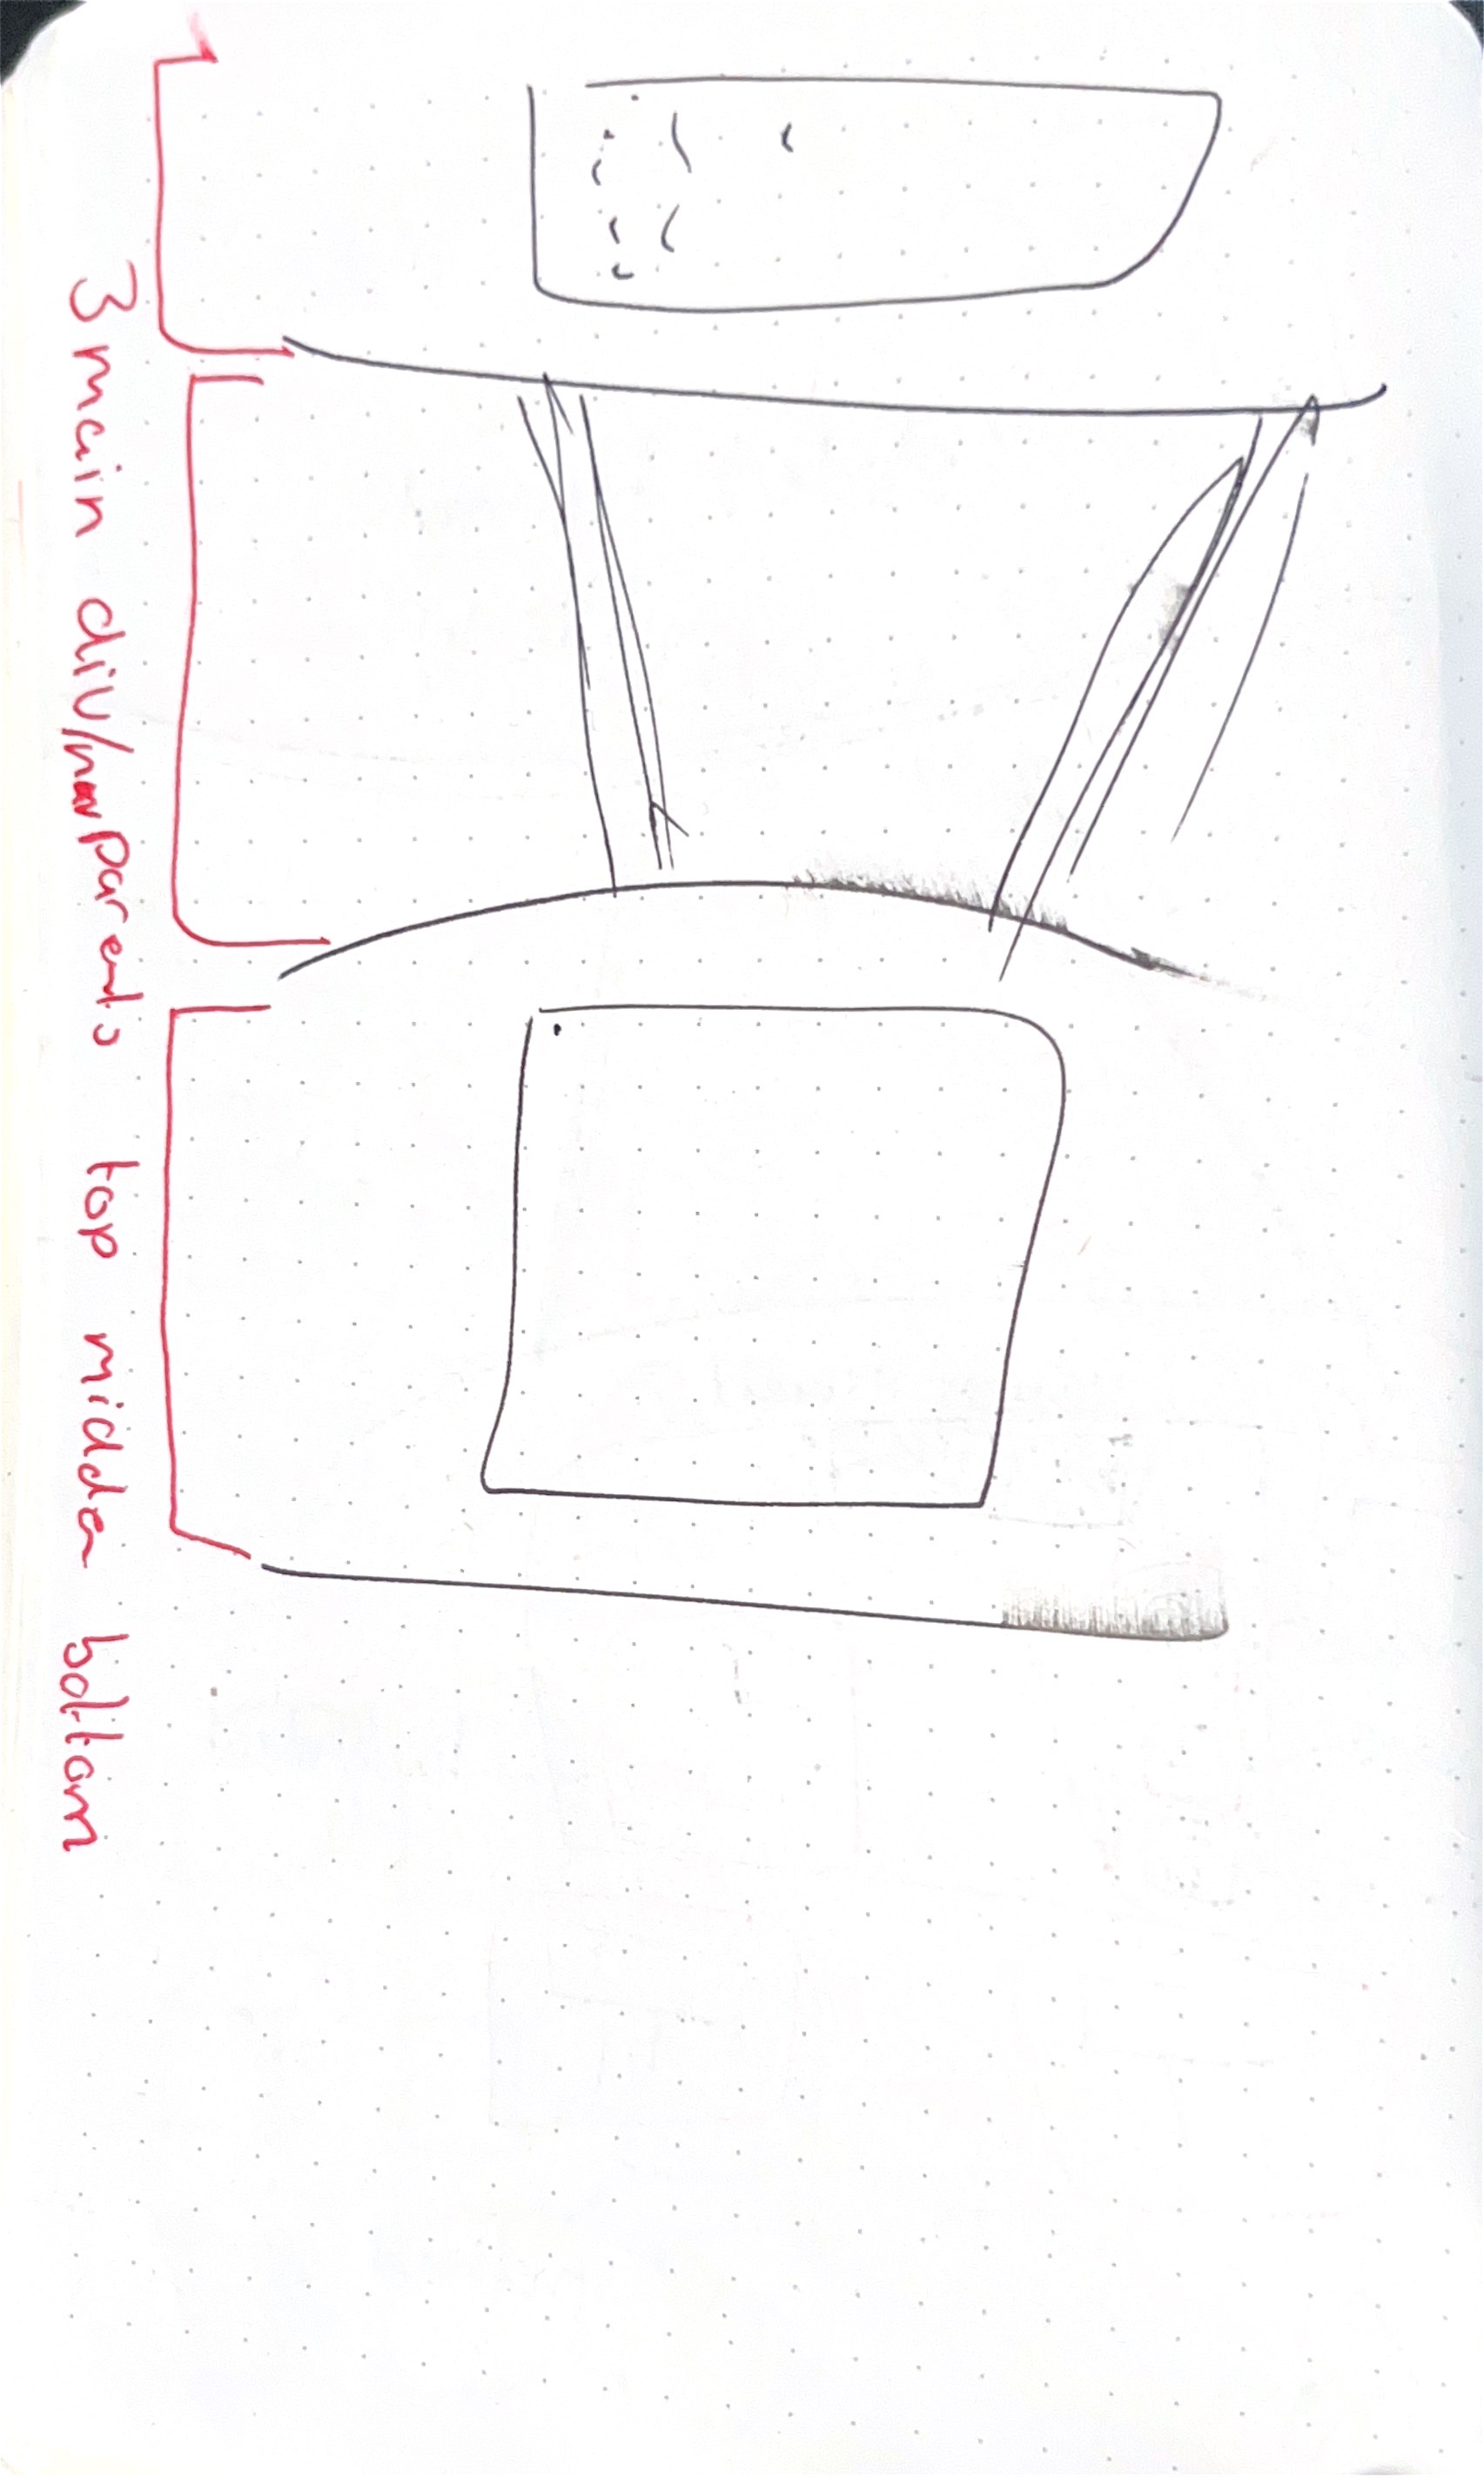 3 main div/ parents top midden bottom